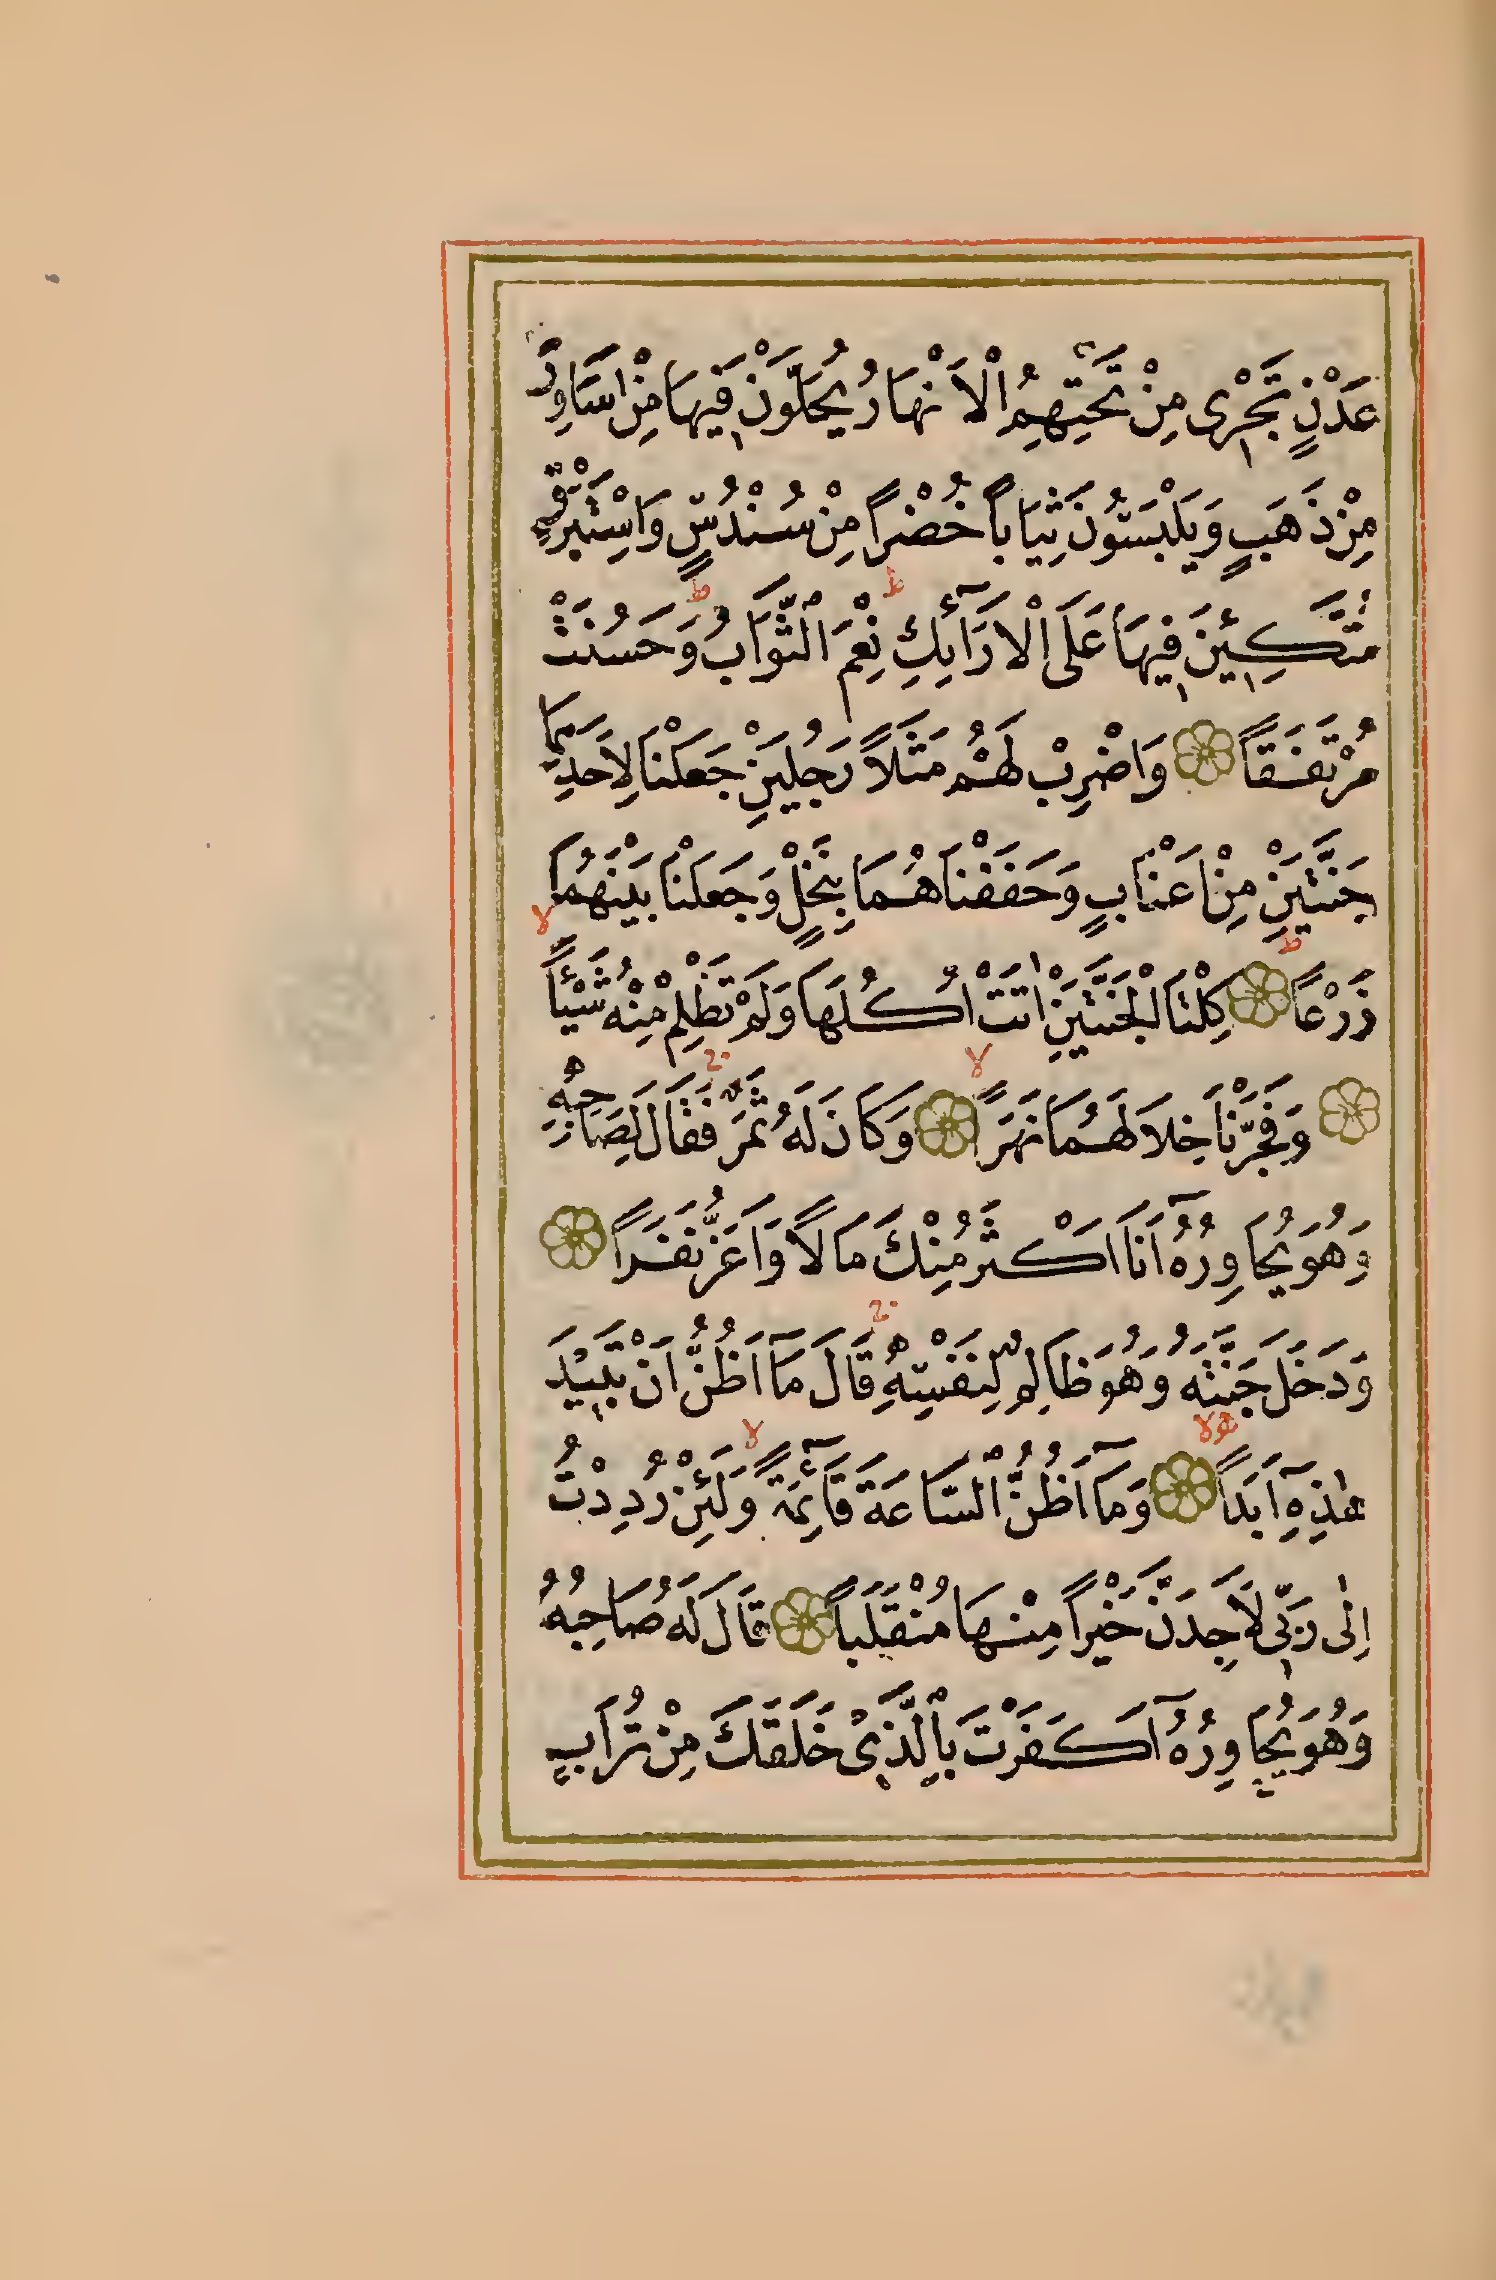 عَدْنٍ تَجْرٖى مِنْ تَحْتِهِمُ الْاَنْهَارُ يُحَلَّوْنَ فٖيهَا مِنْ اَسَاوِرَ
مِنْ ذَهَبٍ وَيَلْبَسُونَ ثِيَاباً خُضْراً مِنْ سُنْدُسٍ وَاِسْتَبْرَقٍ
مُتَّكِـٖٔينَ فٖيهَا عَلَى الْاَرَآئِكِ ط نِعْمَ الثَّوَابُ ط وَحَسُنَتْ
مُرْتَفَقاً وَاضْرِبْ لَهُمْ مَثَلاً رَجُلَيْنِ جَعَلْنَا لِاَحَدِهِمَا
جَنَّتَيْنِ مِنْ اَعْنَابٍ وَحَفَفْنَاهُمَا بِنَخْلٍ وَجَعَلْنَا بَيْنَهُمَا
زَرْعاً ط كِلْتَا الْجَنَّتَيْنِ اٰتَتْ اُكُلَهَا وَلَمْ تَظْلِمْ مِنْهُ شَيْئاً لا
وَفَجَّرْنَا خِلَالَهُمَا نَهَراً لا وَكَانَ لَهُ ثَمَرٌ ج فَقَالَ لِصَاحِبِهٖ
وَهُوَ يُحَاوِرُهُٓ اَنَا اَكْثَرُ مِنْكَ مَالاً وَاَعَزُّ نَفَراً
وَدَخَلَ جَنَّتَهُ وَهُوَ ظَالِمٌ لِنَفْسِهٖ ج قَالَ مَآ اَظُنُّ اَنْ تَبٖيدَ
هٰذِهٖٓ اَبَداً لا وَمَآ اَظُنُّ السَّاعَةَ قَآئِمَةً لا وَلَئِنْ رُدِدْتُ
اِلٰى رَبّٖى لَاَجِدَنَّ خَيْراً مِنْهَا مُنْقَلَباً قَالَ لَهُ صَاحِبُهُ
وَهُوَ يُحَاوِرُهُٓ اَكَفَرْتَ بِالَّذٖى خَلَقَكَ مِنْ تُرَابٍ